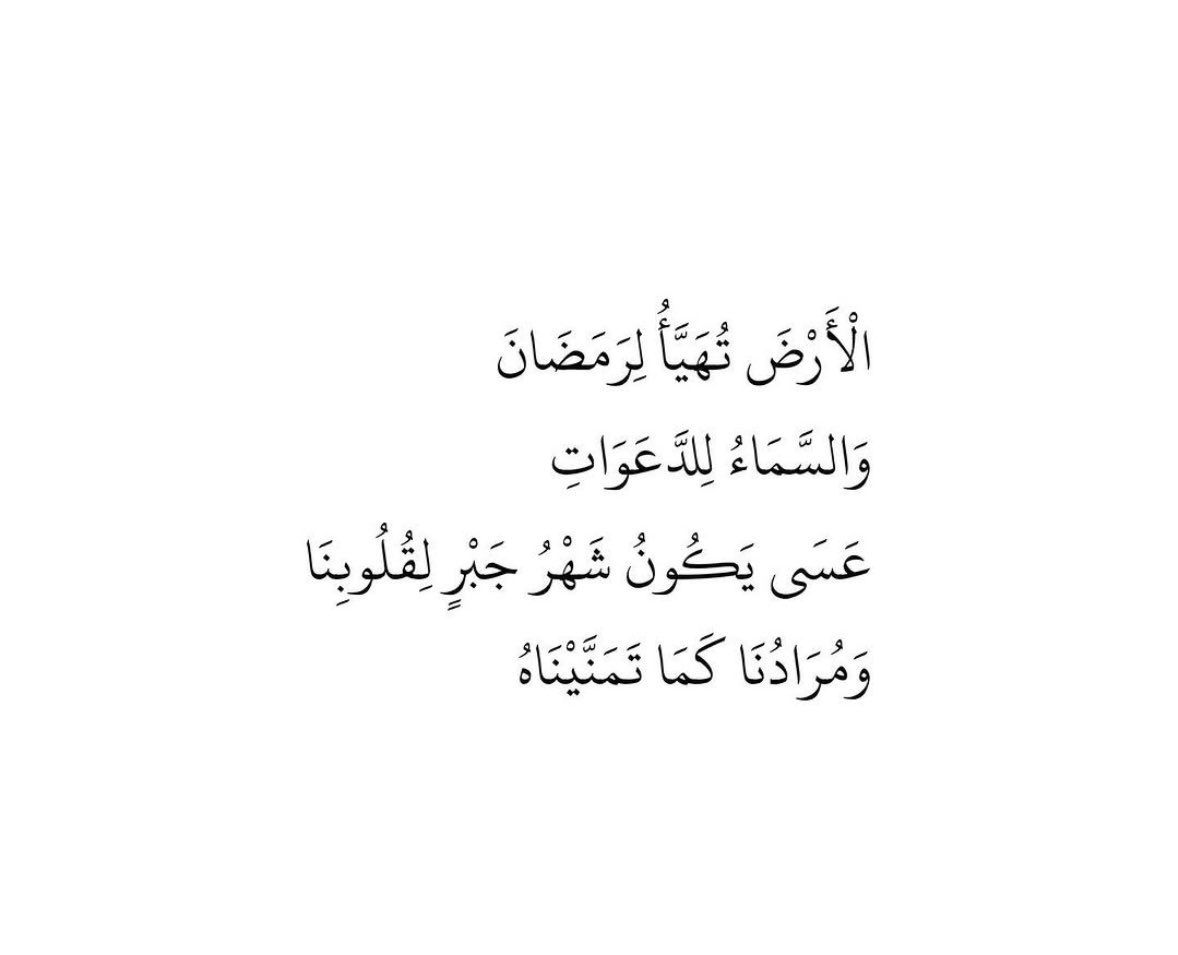 الْأَرْضَ تُهَيَّأُ لِرَمَضَانَ
وَالسَّمَاءُ لِلدَّعَوَاتِ
عَسَى يَكُونُ شَهْرُ جَبْرٍ لِقُلُوبِنَا
وَمُرَادُنَا كَمَا تَمَنَّيْنَاهُ